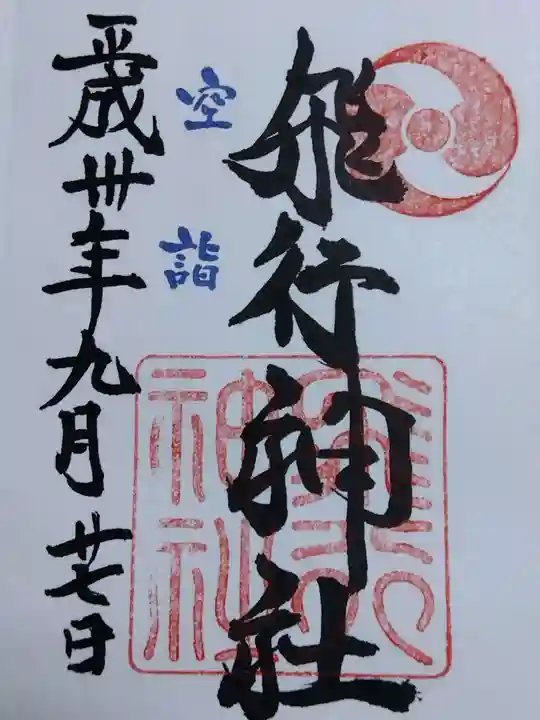 飛行神社
空詣
平成卅年九月廿七日
飛行
神社